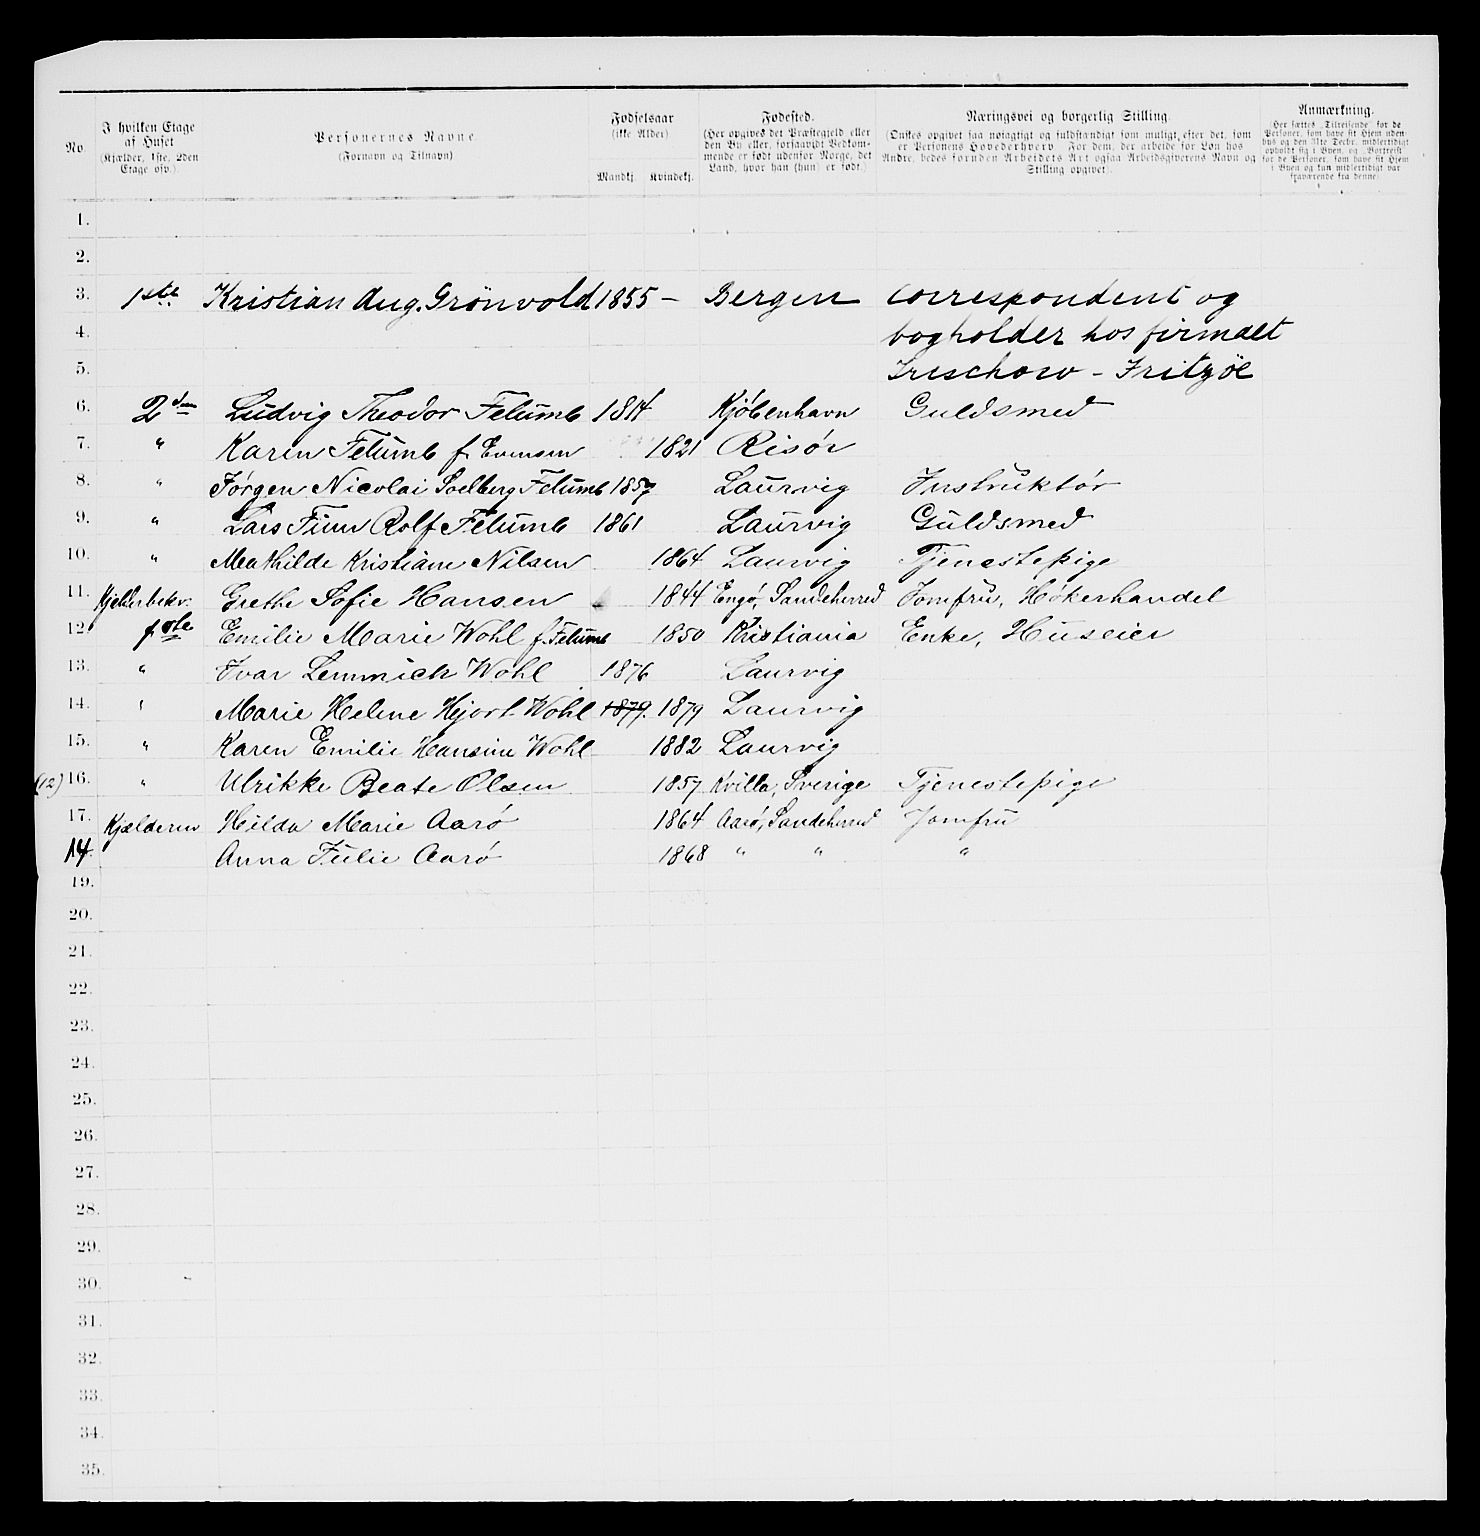 No. | I hvilken Etage af Huset (Kjælder, 1ste, 2den Etage osv.). | Personernes Navne. (Fornavn og Tilnavn) | Fødselsaar (ikke Alder) Mandkj. Kvindekj. | Fødested. (Her opgives det Præstegjeld eller den By eller, forsaavidt Vedkommende er født udenfor Norge, det Land, hvor han (hun) er født.) | Næringsvei og borgerlig Stilling. (Ønskes opgivet saa nøiagtigt og fuldstændigt som muligt, efter det, som er Personens Hovederhverv. For dem, der arbeide for Løn hos Andre, bedes foruden Arbeidets Art ogsaa Arbeidsgiverens Navn og Stilling opgivet). | Anmærkning. (Her sættes "Tilreisende" for de Personer, som have sit Hjem udenbys og den 31te Decbr. midlertidigt opholdt sig i Byen, og "Bortreist" for de Personer, som have sit Hjem i Byen og kun midlertidigt var fraværende fra denne)
1.
2.
3. 1ste Kristian Aug. Grönvold 1855 – Bergen correspondent og
4. bogholder hos firmaet
5. Treschow - Fritzöe
6. 2den Ludvig Theodor Felumb 1814 Kjøbenhavn Guldsmed
7. " Karen Felumb f. Evensen 1821 Risør
8. " Jørgen Nicolai Soelberg Felumb 1857 Laurvig Instruktør
9. " Lars Finn Rolf Felumb 1861 Laurvig Guldsmed
10. " Mathilde Kristiane Nilsen 1864 Laurvig Tjenestepige
11. Kjelderbekv. Grethe Sofie Hansen 1844 Engø, Sandeherred Jomfru, Høkerhandel
12. 1ste Emilie Marie Wohl f. Felumb 1850 Kristiania Enke, Huseier
13. " Ivar Lemmich Wohl 1876 Laurvig
14. " Marie Helene Hjort Wohl 1879. 1879 Laurvig
15. " Karen Emilie Hansine Wohl 1882 Laurvig
(12) 16. " Ulrikke Beate Olsen 1857 Kvilla, Sverige Tjenestepige
17. Kjælderen Hilda Marie Aarø 1864 Aarø, Sandeherred Jomfru
14. Anna Julie Aarø 1868 " " "
19.
20.
21.
22.
23.
24.
25.
26.
27.
28.
29.
30.
31.
32.
33.
34.
35.